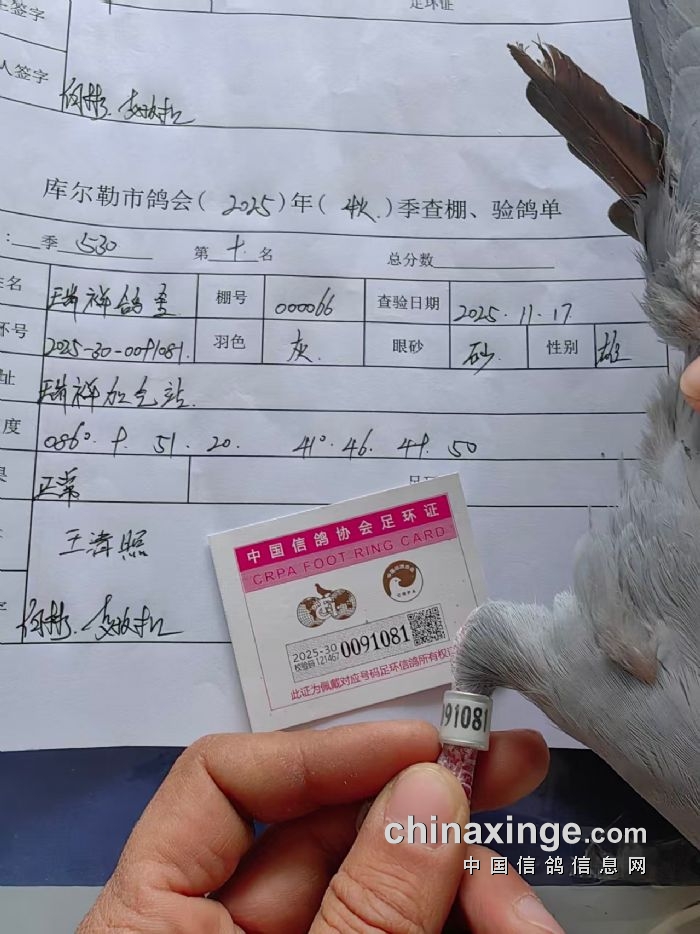 签字
足环证
人签字
库尔勒市鸽会(2025)年(秋)季查棚、验鸽单
季 530 第十名 总分数
名 瑞祥鸽舍 棚号 000066 查验日期 2025.11.17
环号 2025-30-0091081 羽色 灰 眼砂 砂 性别 雄
址 瑞祥加气站
度 086°. 51. 20. 41°. 46. 50
正常
王清照
中国信鸽协会足环证
CRPA FOOT RING CARD
2025-30
校验码121467
0091081
此证为佩戴对应号码足环信鸽所有权
091081
chinaxinge.com
中国信鸽信息网